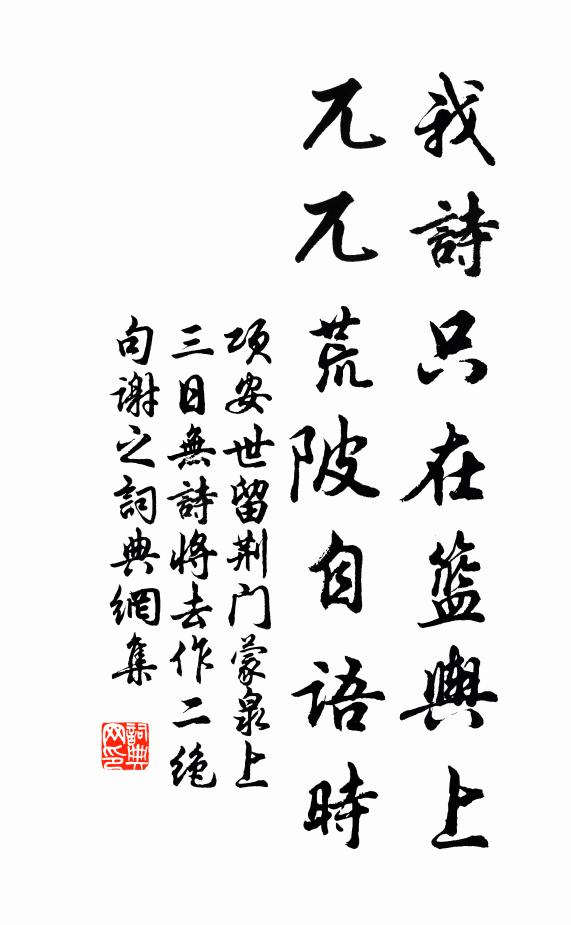 我詩只在籃輿上
兀兀荒陂自語時
項安世留荆门蒙泉上
三日無詩將去作二绝
句謝之詞典網集
詞典
网印